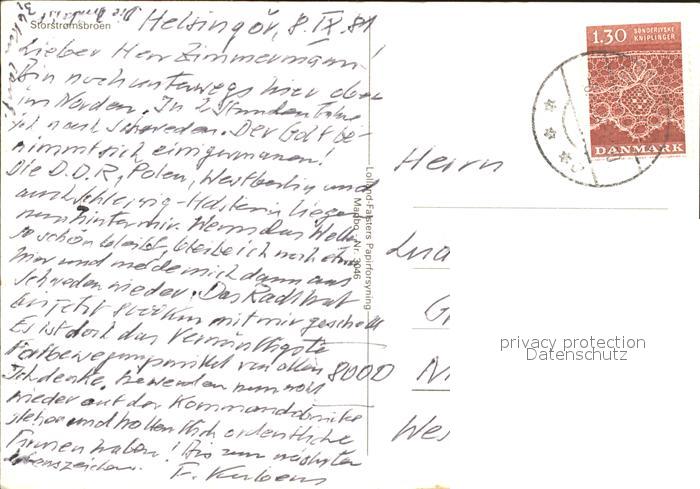 Storstrømsbroen
Helsingör, 8. IX. 81
Lieber Herr Zimmermann!
Bin noch unterwegs hier oben
im Norden. In 2 Stunden fahre
ich nach Schweden. Der Golf be-
nimmt sich einigermaßen!
Die D.D.R, Polen, Westberlin und
auch Schleswig-Holstein liegen
nun hinter mir. Wenn das Wetter
so schön bleibt, bleibe ich noch
hier und melde mich dann aus
Schweden wieder. Das Rad hat
bis jetzt 8000 km mit mir geschafft
Es ist doch das Vernünftigste
Fortbewegungsmittel von allen
Ich denke, Sie werden nun wohl
wieder auf der Kommandobrücke
stehen und hoffentlich ordentliche
haben! Bis zum nächsten
Lebenszeichen.
Lolland-Falsters Papirforsyning
Maribo. Nr. 3046
1.30 SØNDERJYSKE
KNIPLINGER
DANMARK
Herrn
Lud
G
8000 M
Wes
privacy protection
Datenschutz